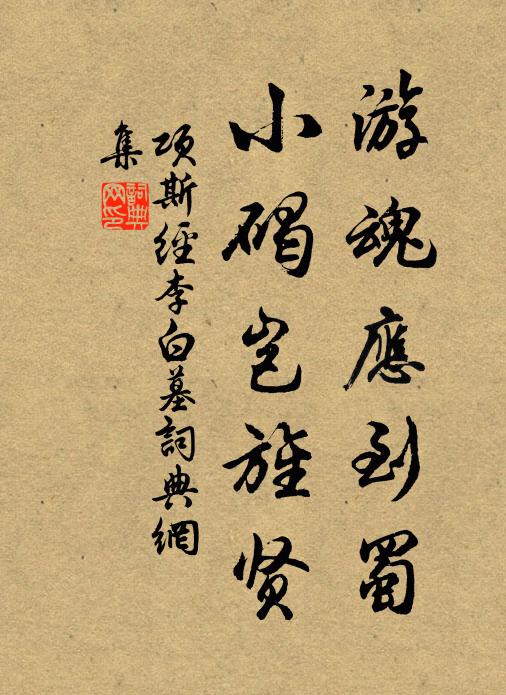 游魂應到蜀
小碣岂旌贤
項斯經李白墓詞典網
集
詞典
网印